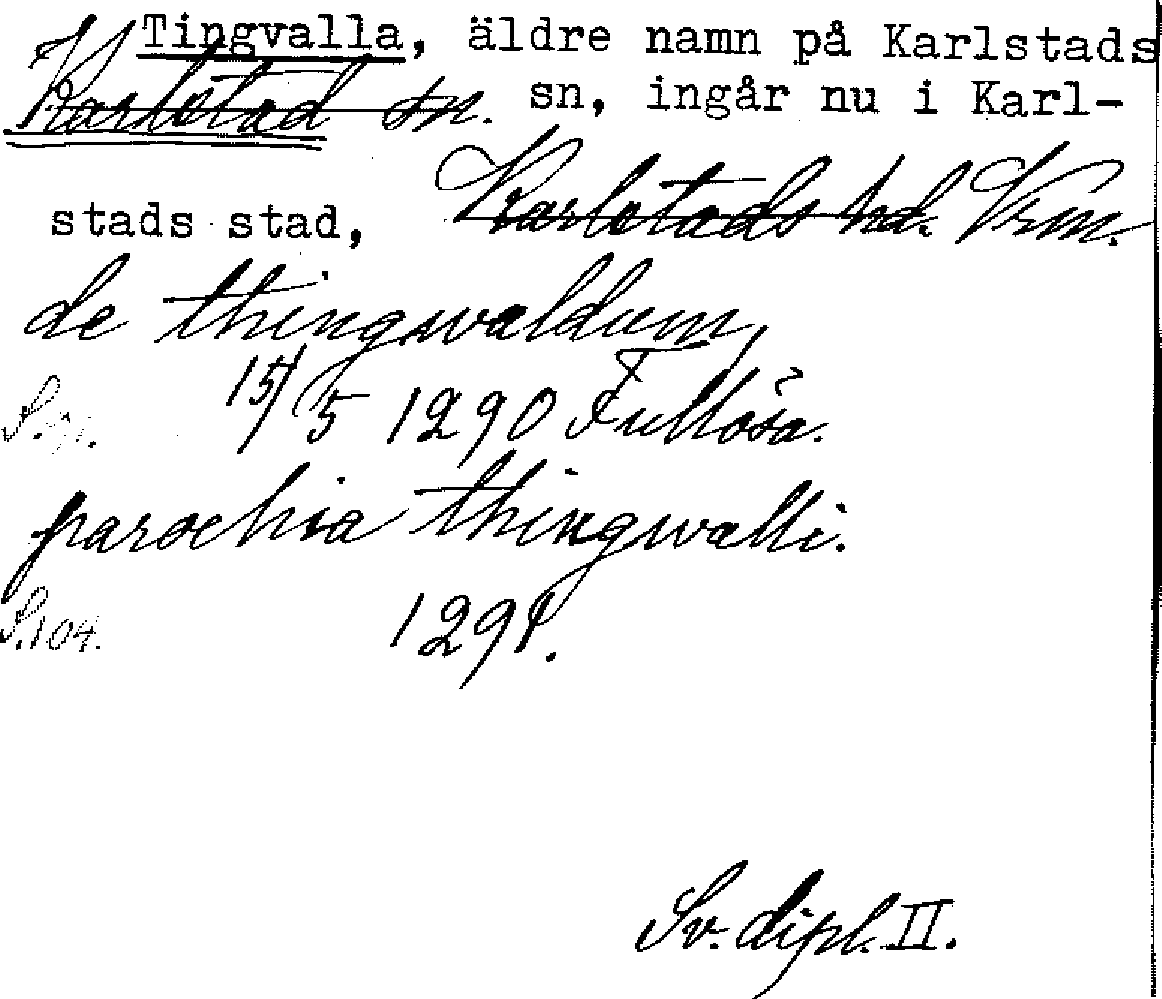 Tingvalla, äldre namn på Karlstads
Karlstad sn. sn, ingår nu i Karl-
stads stad, Karlstads hd. Vrm.
de thingwaldum,
15/5 1290 Fullösa.
parochia thingwalli.
S.104. 1291.
Sv. dipl. II.